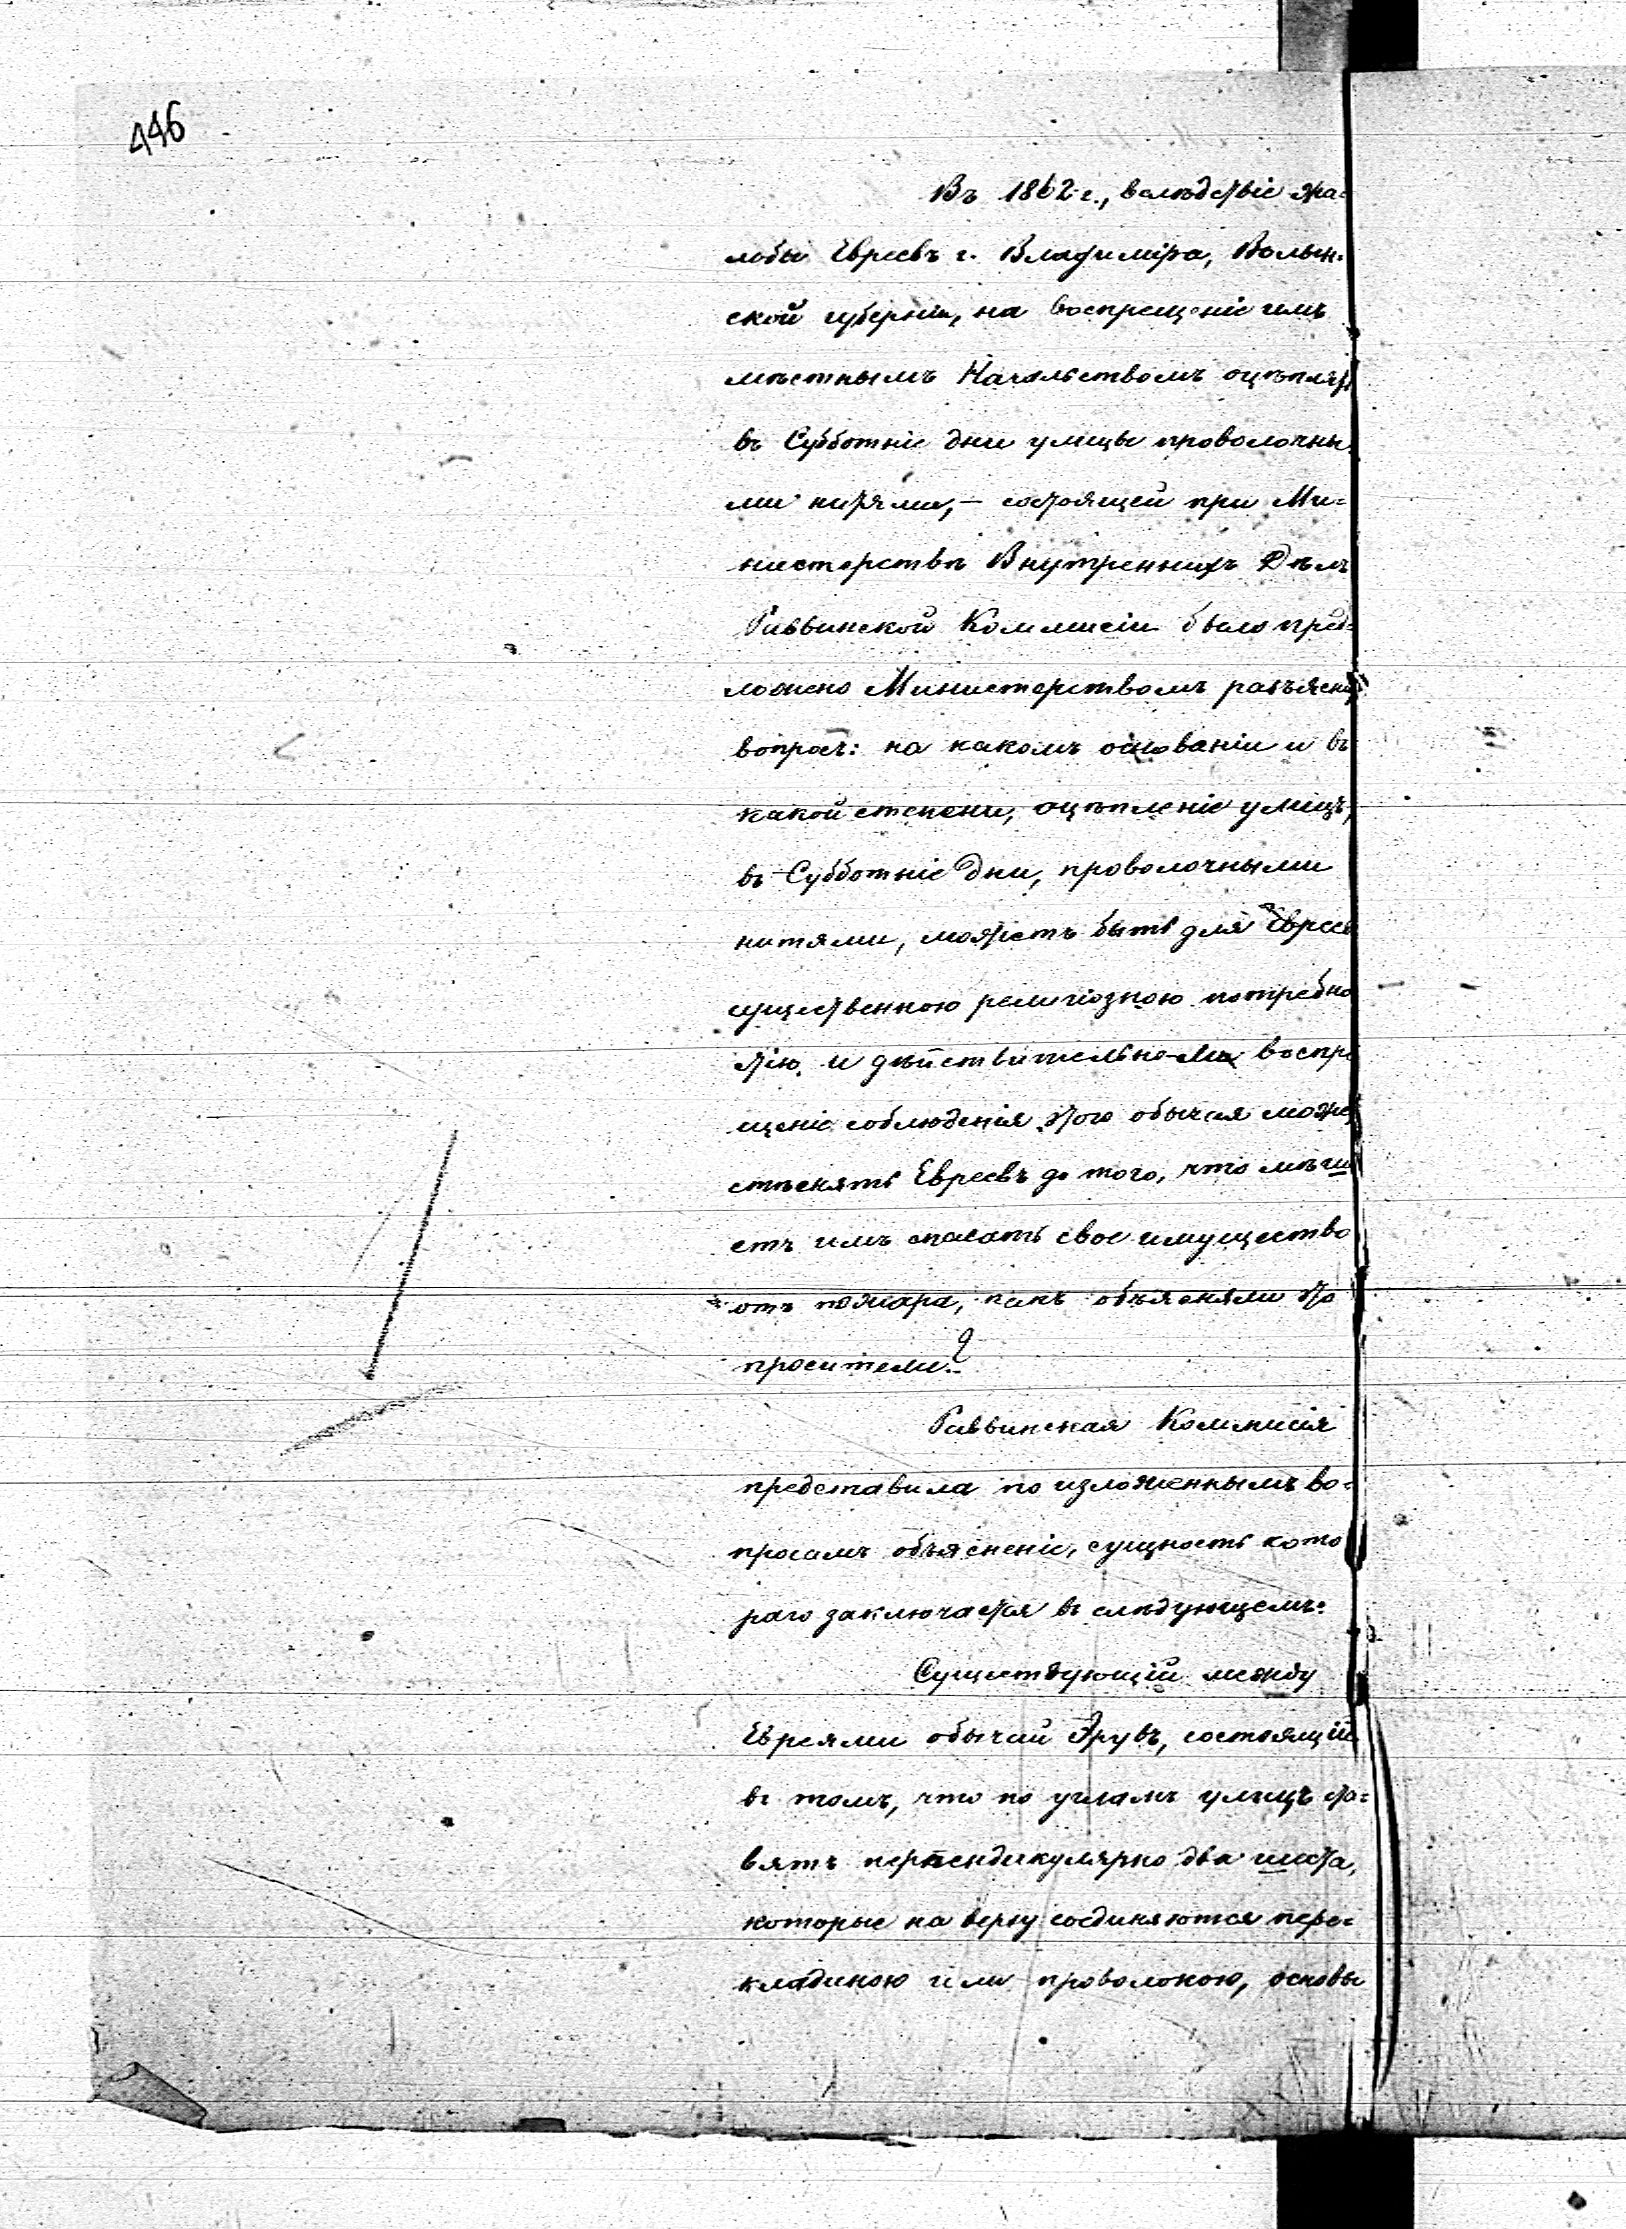 446
Въ 1862 г., вслѣдствіе жа=
лобы Евреевъ г. Владиміра, Волын=
ской губерніи, на воспрещеніе имъ
мѣстнымъ Начальствомъ оцѣплять
въ Субботніе дни улицы проволочны=
ми нитями, – состоящей при Ми=
нистерствѣ Внутреннихъ Дѣлъ
Раввинской Коммисіи было пред=
ложено Министерствомъ разъяснить
вопросъ: на какомъ основаніи и въ
какой степени, оцѣпленіе улицъ,
въ Субботніе дни, проволочными
нитями, можетъ быть для Евреевъ
существенною религіозною потребно
стію и дѣйствительно-ли воспре
щеніе соблюденія этого обычая може
стѣснять Евреевъ до того, что мѣша
етъ имъ спасать свое имущество
отъ пожара, какъ объясняли это
просители?
Раввинская Коммисія
представила по изложеннымъ во=
просамъ объясненіе, сущность кото
раго заключается въ слѣдующемъ:
Существующій между
Евреями обычай Эрувъ, состоящій
въ томъ, что по угламъ улицъ ста=
вятъ перпендикулярно два шеста,
которые на верху соединяются пере=
кладиною или проволокою, основы